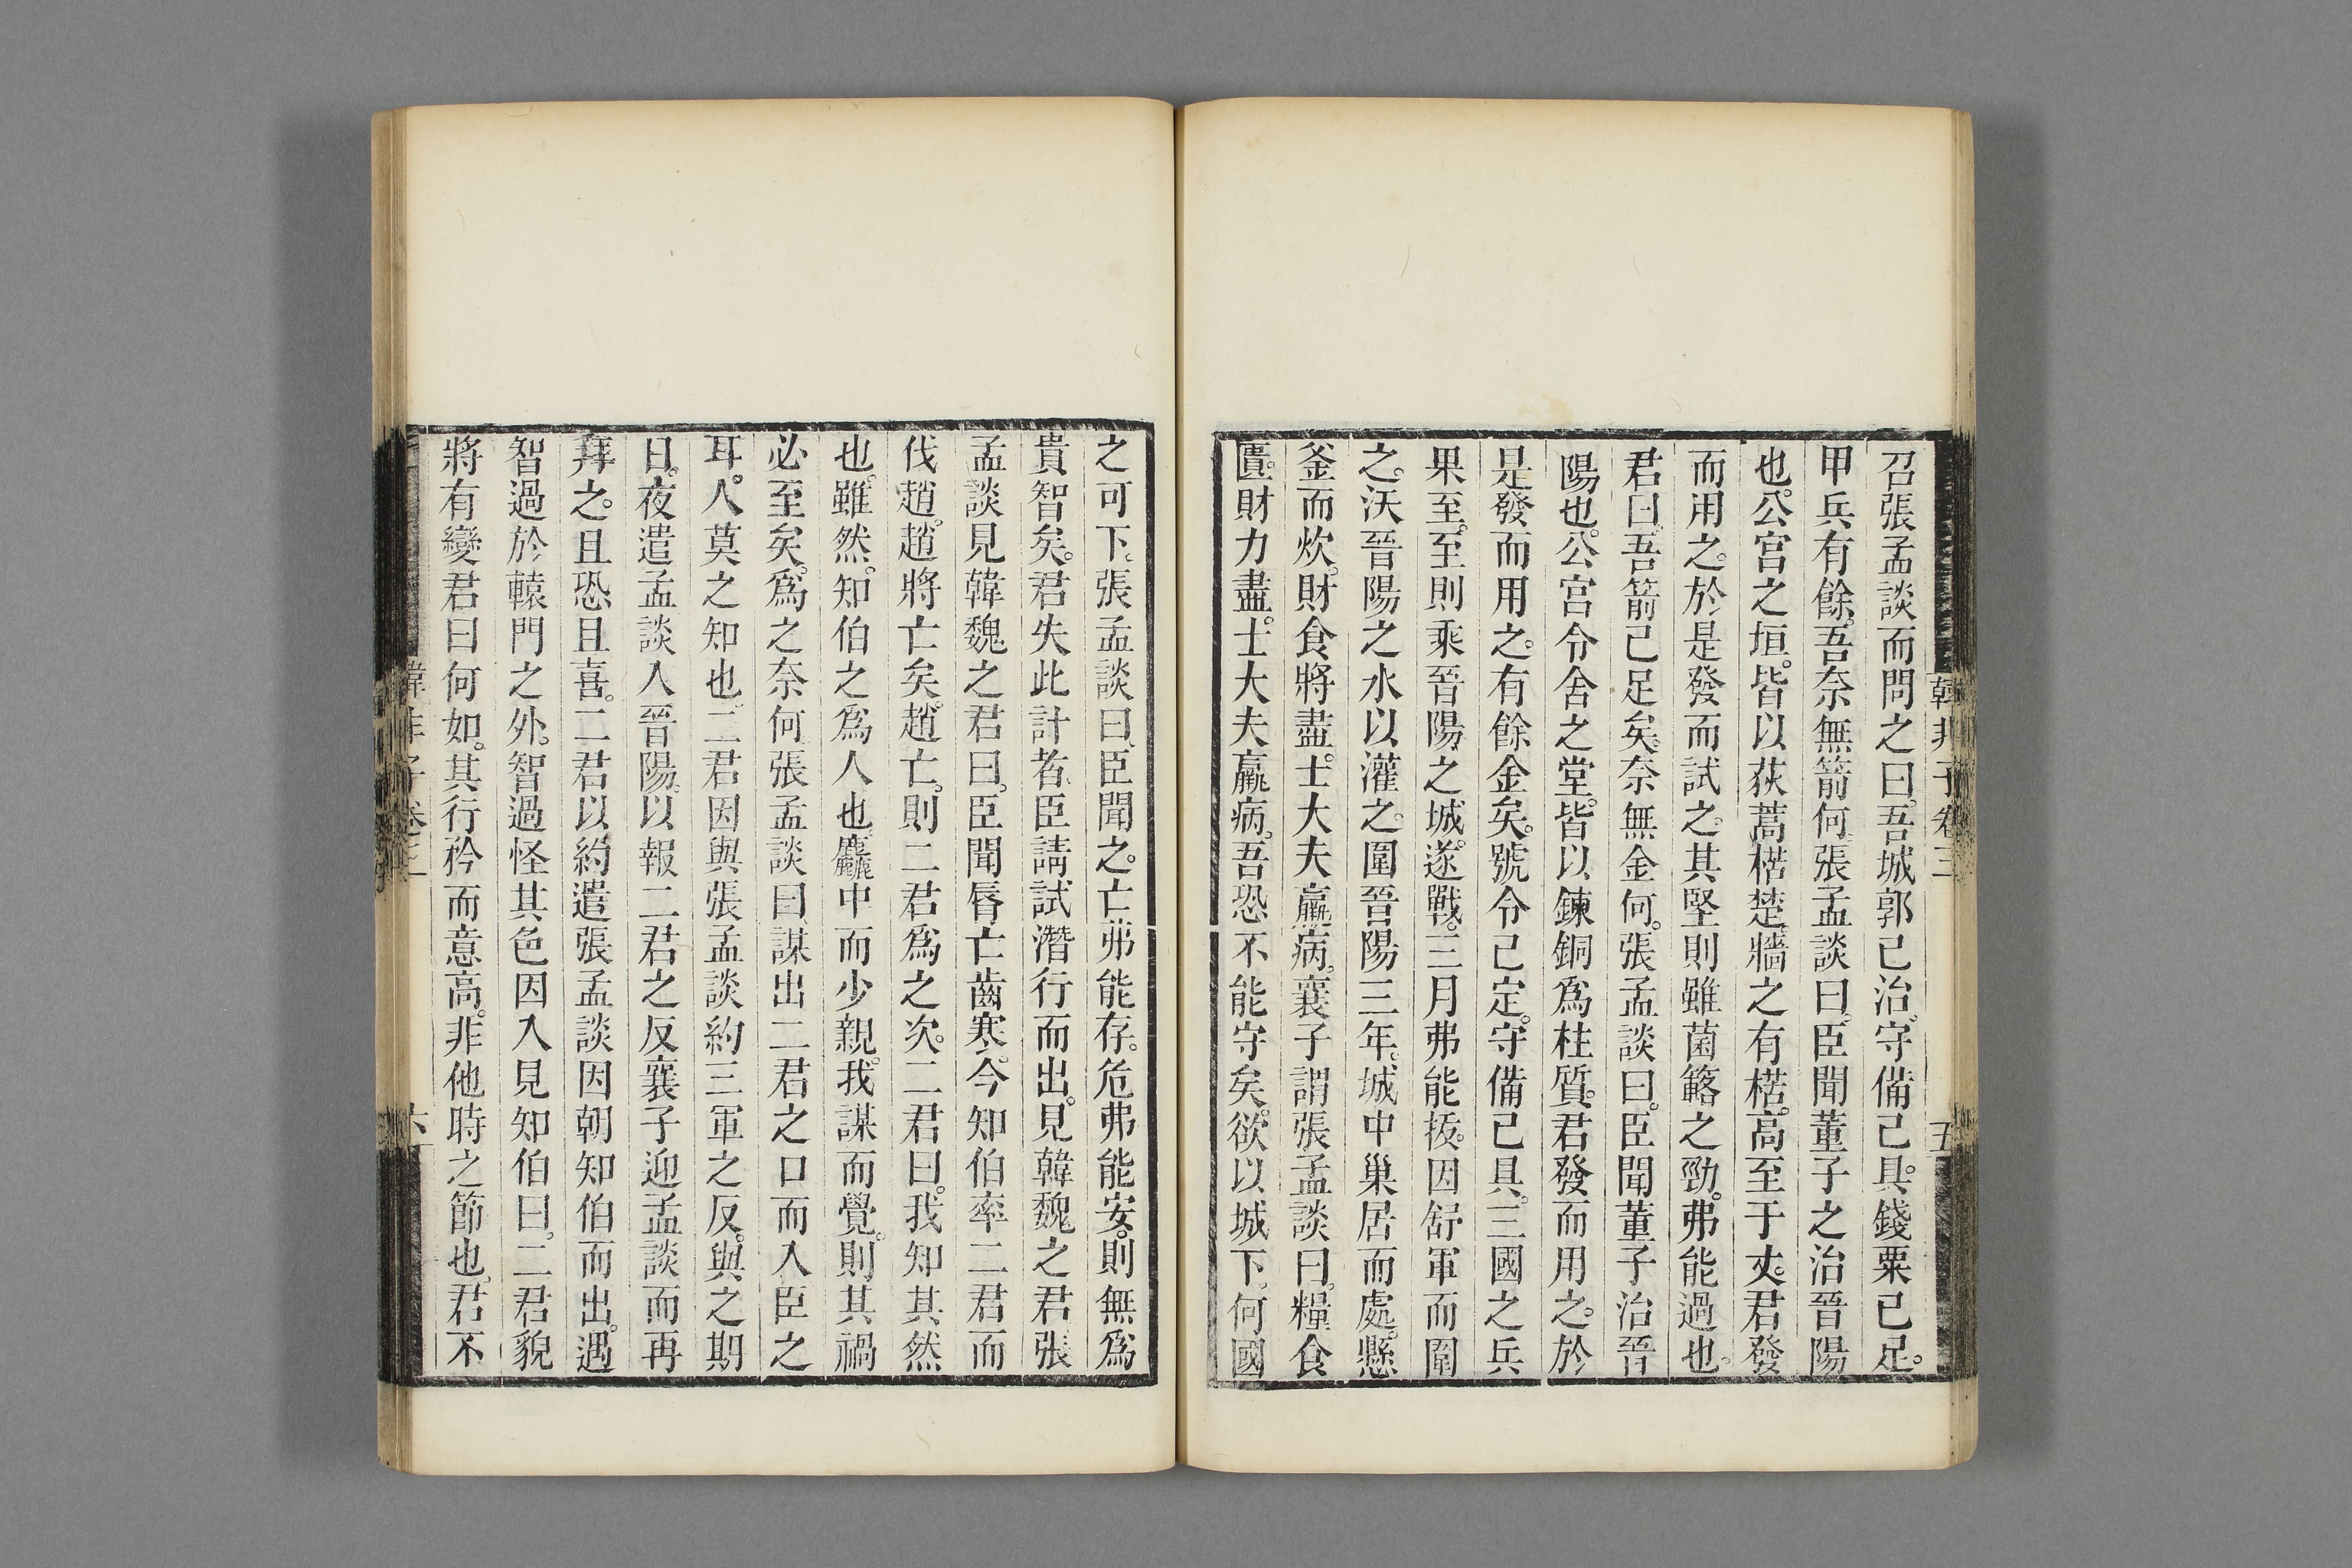 召張孟談而問之曰。吾城郭已治。守備已具。錢粟已足。
甲兵有餘。吾奈無箭何。張孟談曰。臣聞董子之治晉陽
也。公宮之垣。皆以荻蒿楛楚。牆之有楛。高至于丈。君發
而用之。於是發而試之。其堅則雖菌簵之勁。弗能過也。
君曰。吾箭已足矣。奈無金何。張孟談曰。臣聞董子治晉
陽也。公宮令舍之堂。皆以鍊銅為柱質。君發而用之。於
是發而用之。有餘金矣。號令已定。守備已具。三國之兵
果至。至則乘晉陽之城。遂戰。三月弗能拔。因舒軍而圍
之。沃晉陽之水以灌之。圍晉陽三年。城中巢居而處。懸
釜而炊。財食將盡。士大夫羸病。襄子謂張孟談曰。糧食
匱。財力盡。士大夫羸病。吾恐不能守矣。欲以城下。何國
韓非子卷三
五
之可下。張孟談曰。臣聞之。亡弗能存。危弗能安。則無為
貴智矣。君失此計者。臣請試潛行而出。見韓魏之君張
孟談見韓魏之君曰。臣聞唇亡齒寒。今知伯率二君而
伐趙。趙將亡矣。趙亡。則二君為之次。二君曰。我知其然
也。雖然。知伯之為人也。麤中而少親。我謀而覺。則其禍
必至矣。為之奈何。張孟談曰。謀出二君之口而入臣之
耳。人莫之知也。二君因與張孟談約三軍之反。與之期
日。夜遣孟談入晉陽。以報二君之反襄子迎孟談而再
拜之。且恐且喜。二君以約遣張孟談因朝知伯而出。遇
智過於轅門之外。智過怪其色因入見知伯曰。二君貌
將有變君曰何如。其行矜而意高。非他時之節也。君不
韓非子卷三
六